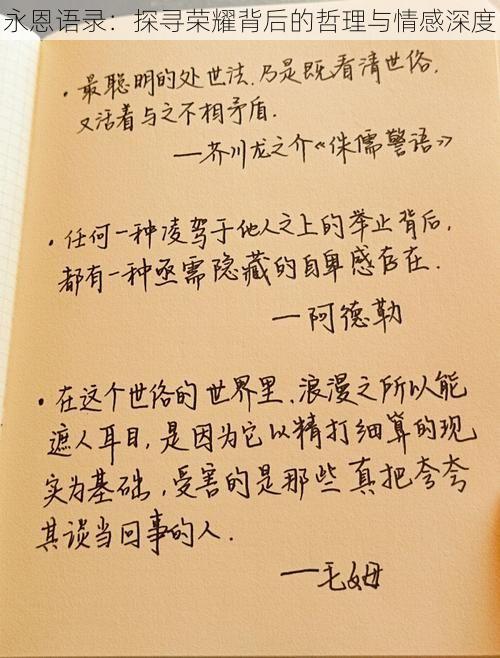 永恩语录：探寻荣耀背后的哲理与情感深度
· 最聪明的处世法，乃是既看清世俗，
又活着与之不相矛盾.
——芥川龙之介《侏儒警语》
· 任何一种凌驾于他人之上的举止背后，
都有一种亟需隐藏的自卑感存在.
——阿德勒
· 在这个世俗的世界里，浪漫之所以能
遮人耳目，是因为它以精打细算的现
实为基础，受害的是那些真把夸夸
其谈当回事的人.
——毛姆